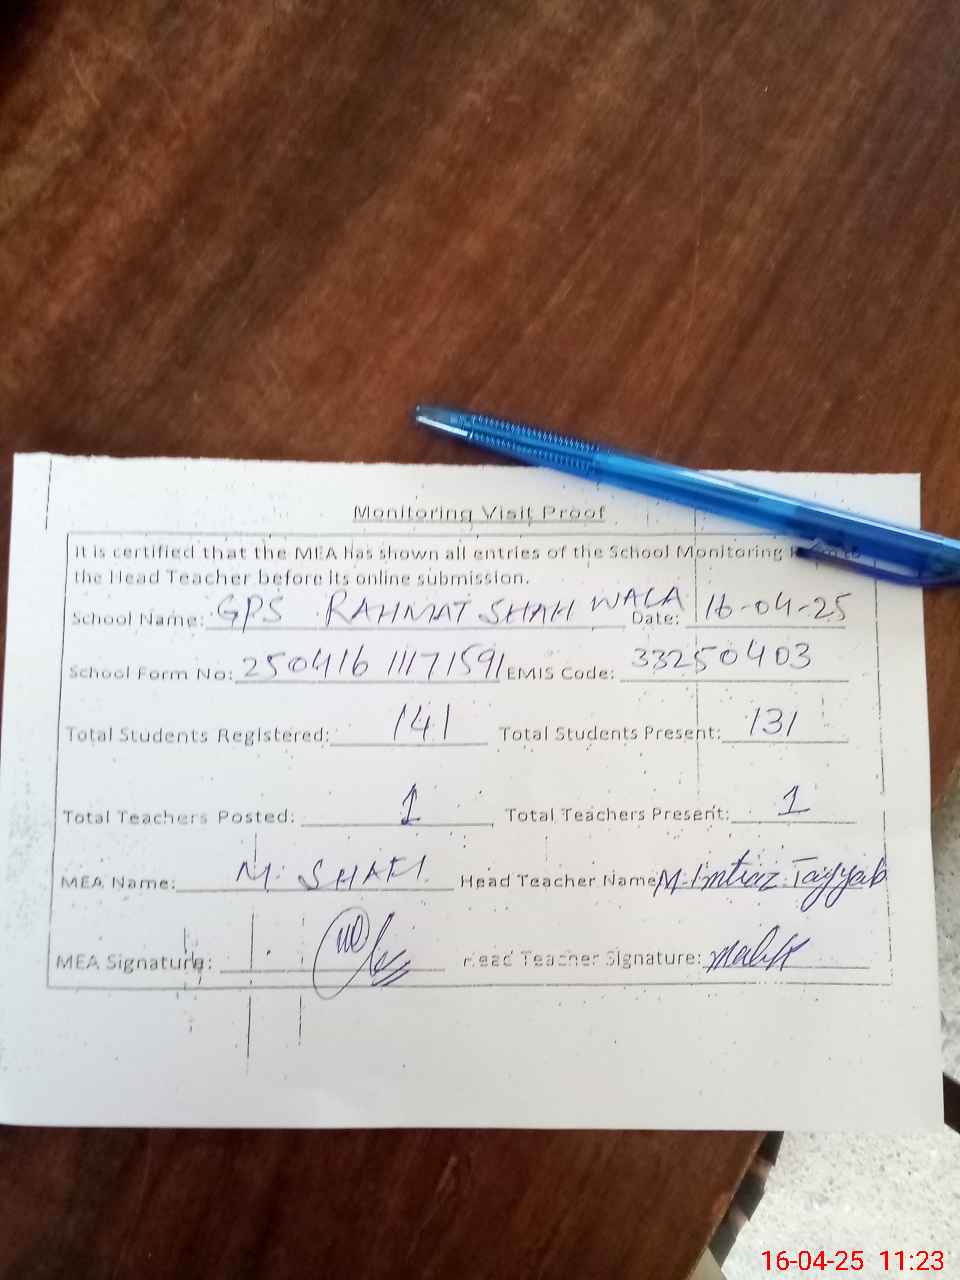 Monitoring Visit Proof
It is certified that the MEA has shown all entries of the School Monitoring
the Head Teacher before its online submission.
School Name: GPS RAHMAT SHAH WALA Date: 16-04-25
School Form No: 250416 11171591 EMIS Code: 33250403
Total Students Registered: 141 Total Students Present: 131
Total Teachers Posted: 1 Total Teachers Present: 1
MEA Name: M. SHAFI. Head Teacher Name M. Imtiaz Tayyab
MEA Signature: Head Teacher Signature: Malik
16-04-25 11:23